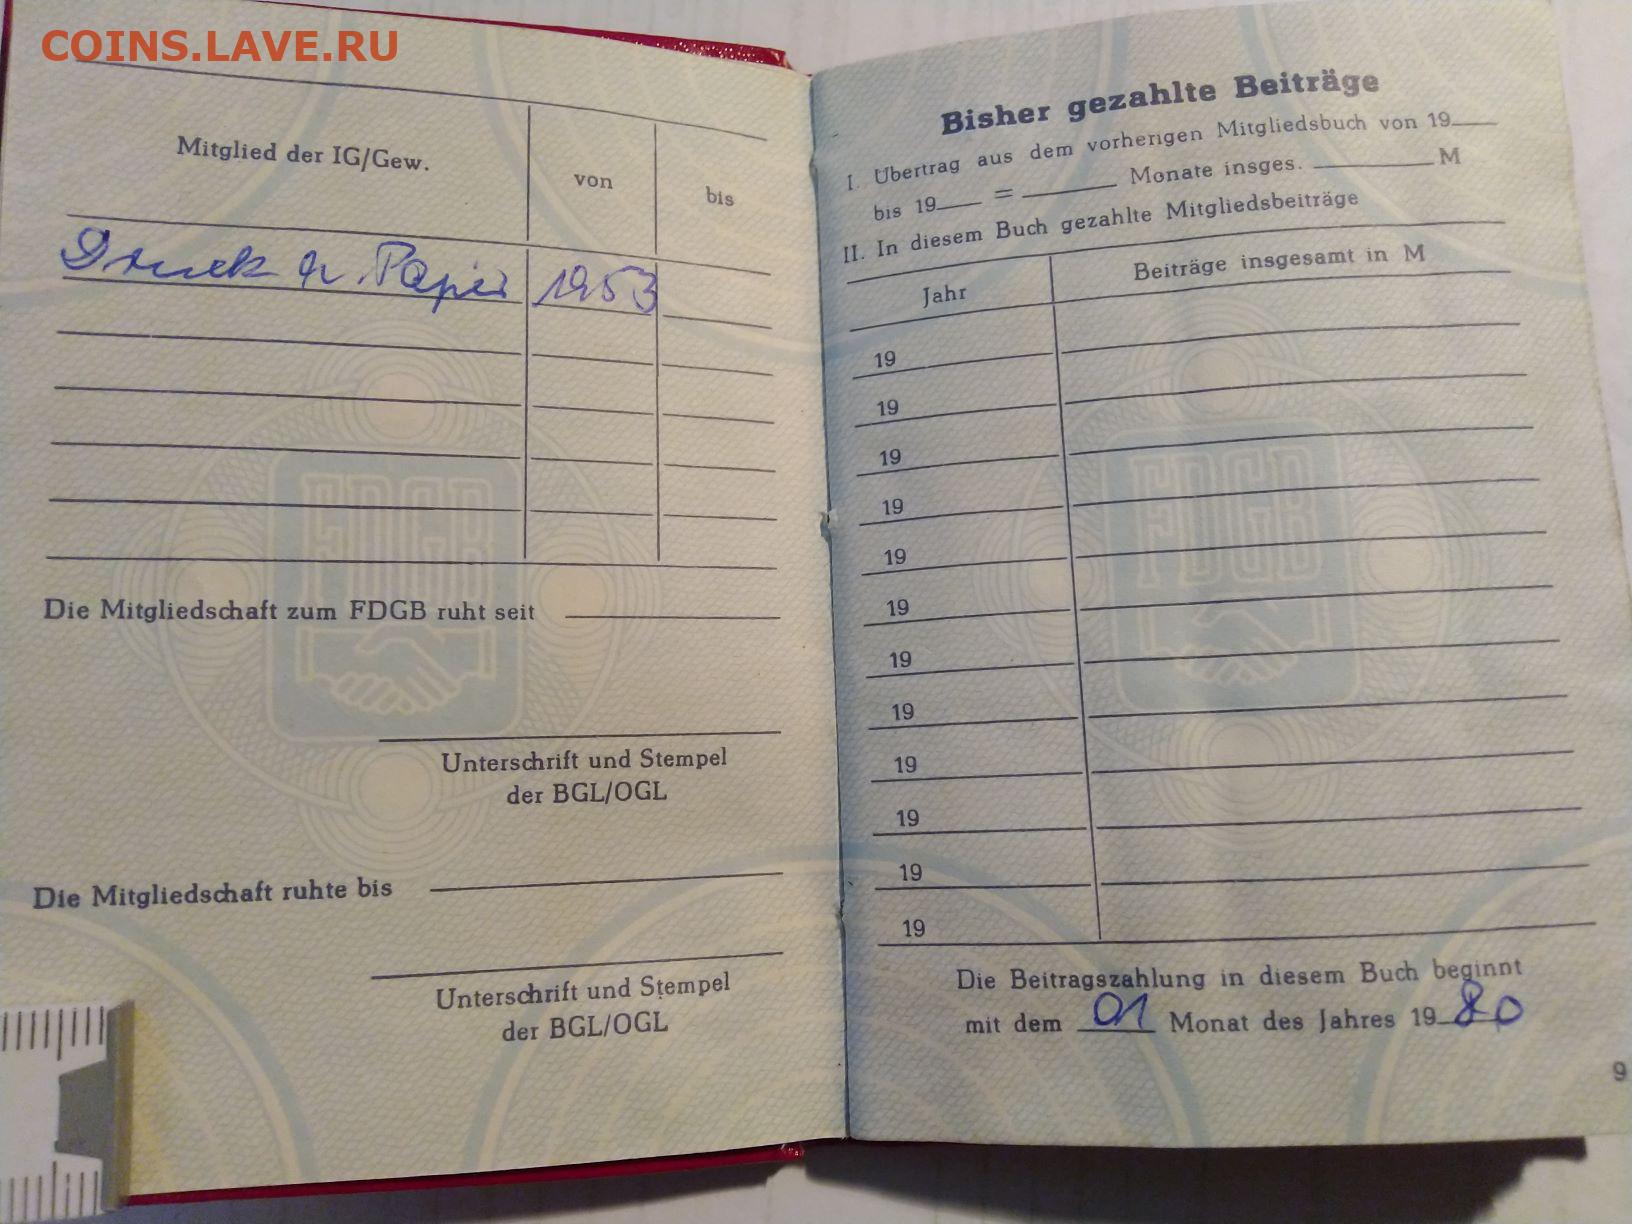 COINS.LAVE.RU
Mitglied der IG/Gew. von bis
Druck u. Papier 1953
FDGB
Die Mitgliedschaft zum FDGB ruht seit
Unterschrift und Stempel
der BGL/OGL
Die Mitgliedschaft ruhte bis
Unterschrift und Stempel
der BGL/OGL
Bisher gezahlte Beiträge
I. Übertrag aus dem vorherigen Mitgliedsbuch von 19
bis 19 = Monate insges. M
II. In diesem Buch gezahlte Mitgliedsbeiträge
Jahr Beiträge insgesamt in M
19
19
19
19
FDGB
19
19
19
19
19
19
19
19
Die Beitragszahlung in diesem Buch beginnt
mit dem 01 Monat des Jahres 1980
9